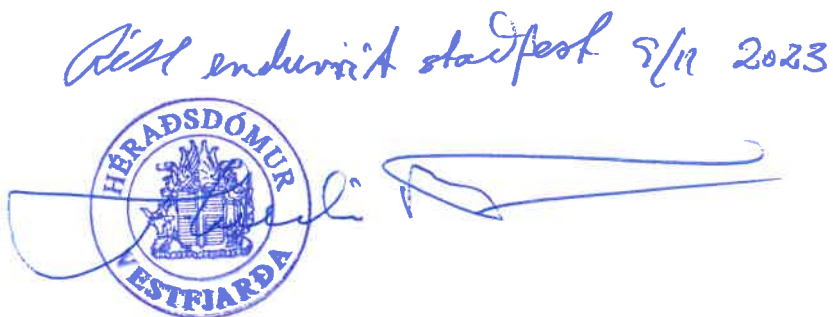 Rétt endurrit staðfest 9/11 2023
HÉRAÐSDÓMUR
VESTFJARÐA